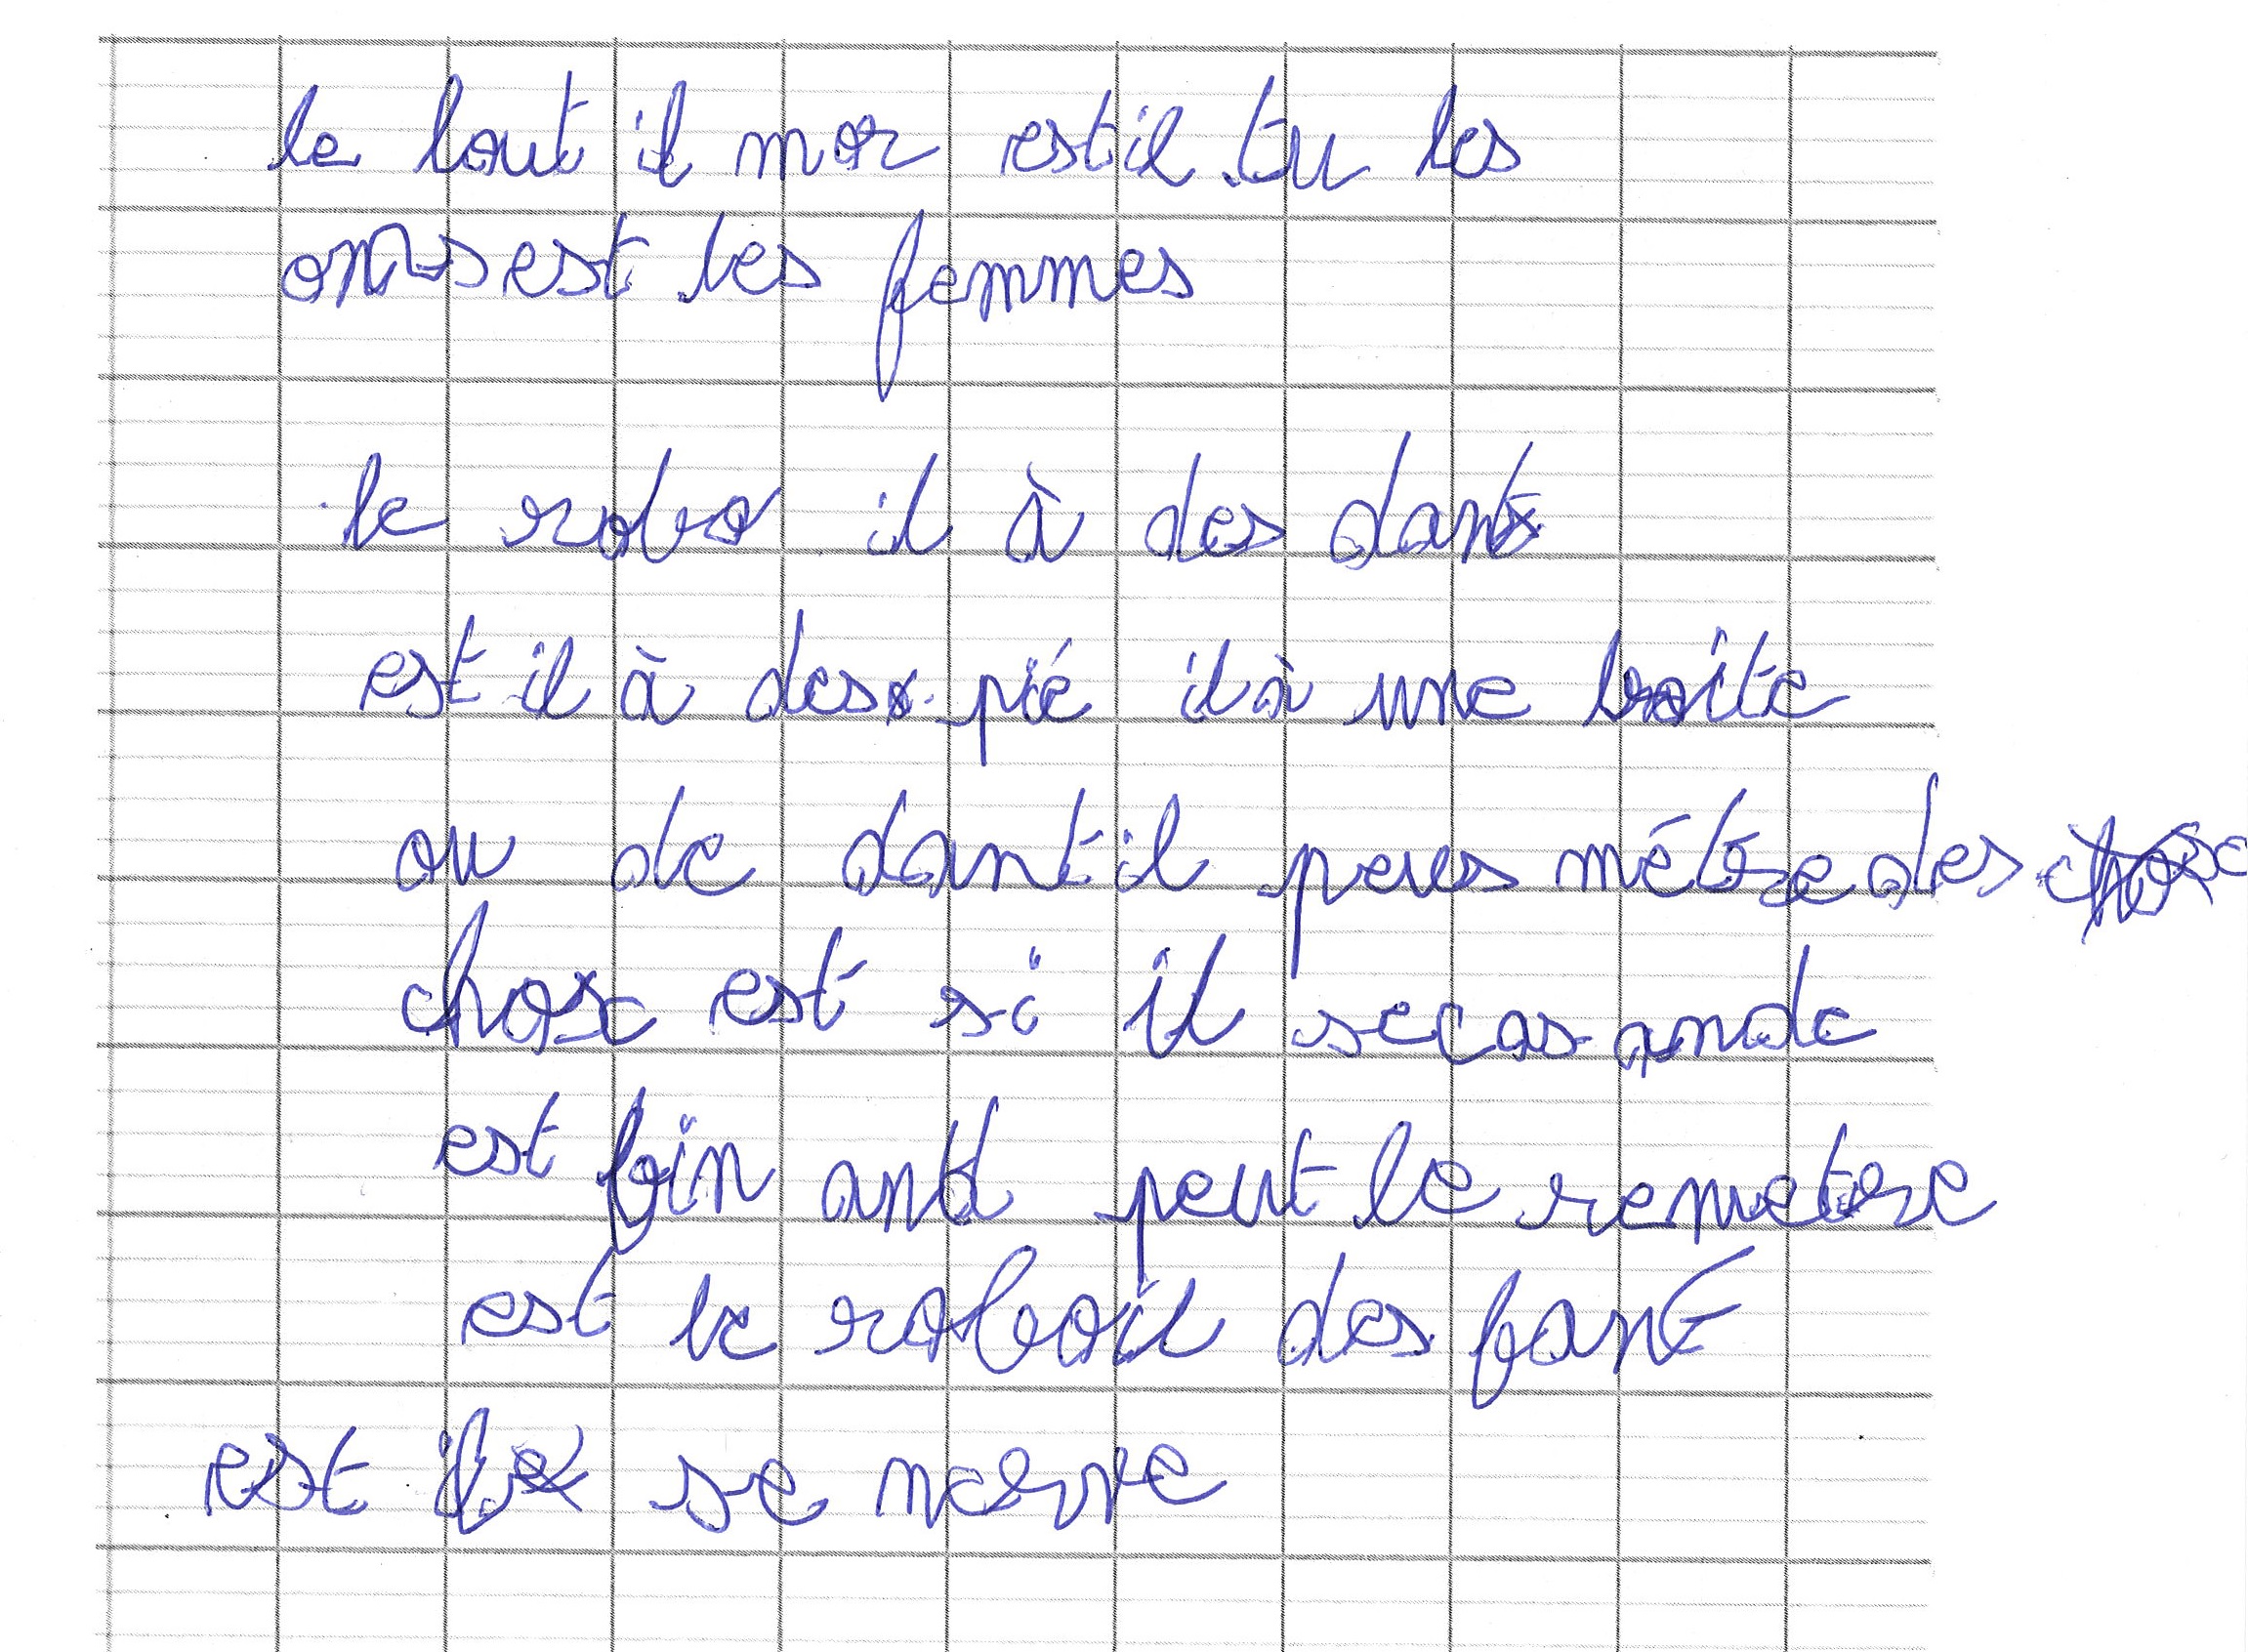 le lout il mor est il tu les
oms est les femmes
le robo il à des dant
est il à des pié il à une boite
ou de dant il peus métre des chose
chose est si il se cas ande
est bin and peut le remetre
est le robo il des fant
est il se nerve